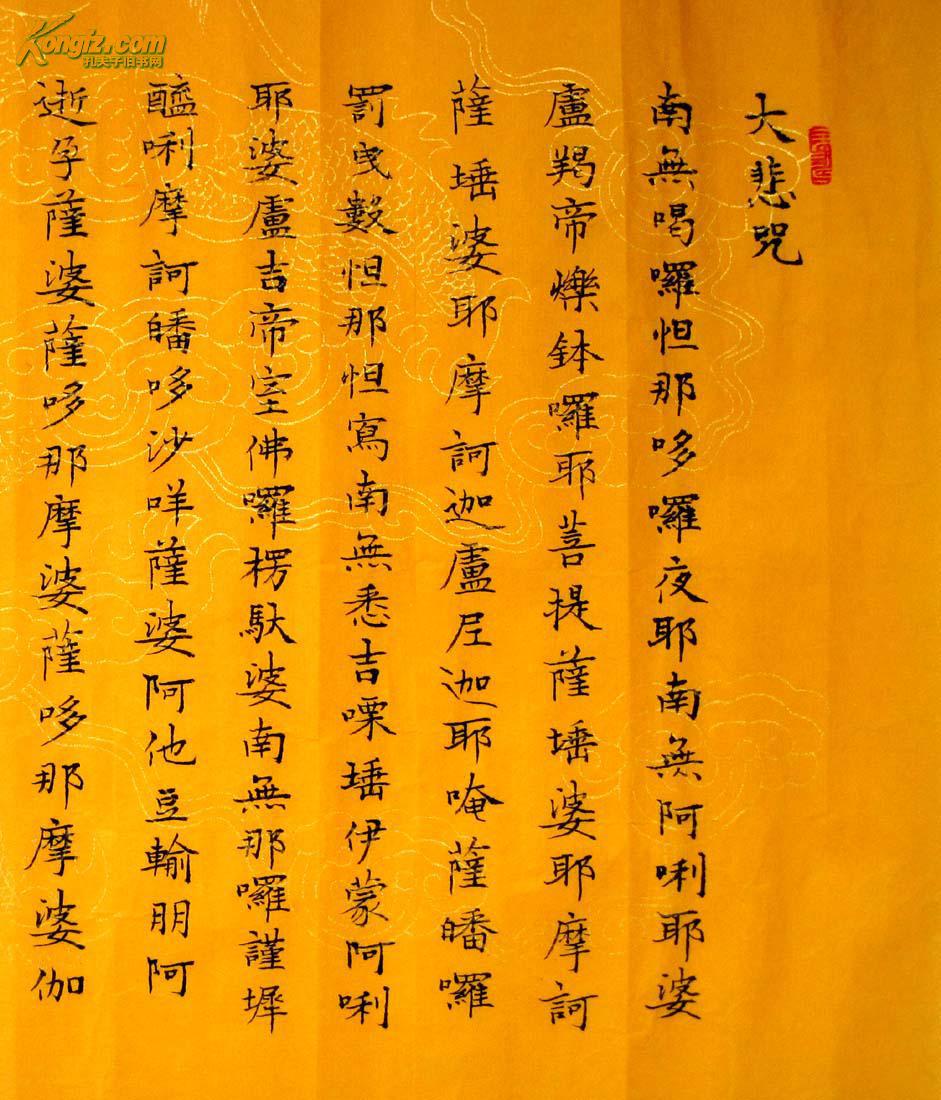 Kongfz.com
孔夫子旧书网
大悲咒
南無喝囉怛那哆囉夜耶南無阿唎耶婆
盧羯帝爍鉢囉耶菩提薩埵婆耶摩訶
薩埵婆耶摩訶迦盧尼迦耶唵薩皤囉
罰曳數怛那怛寫南無悉吉㗚埵伊蒙阿唎
耶婆盧吉帝室佛囉楞馱婆南無那囉謹墀
醯唎摩訶皤哆沙咩薩婆阿他豆輸朋阿
逝孕薩婆薩哆那摩婆薩哆那摩婆伽